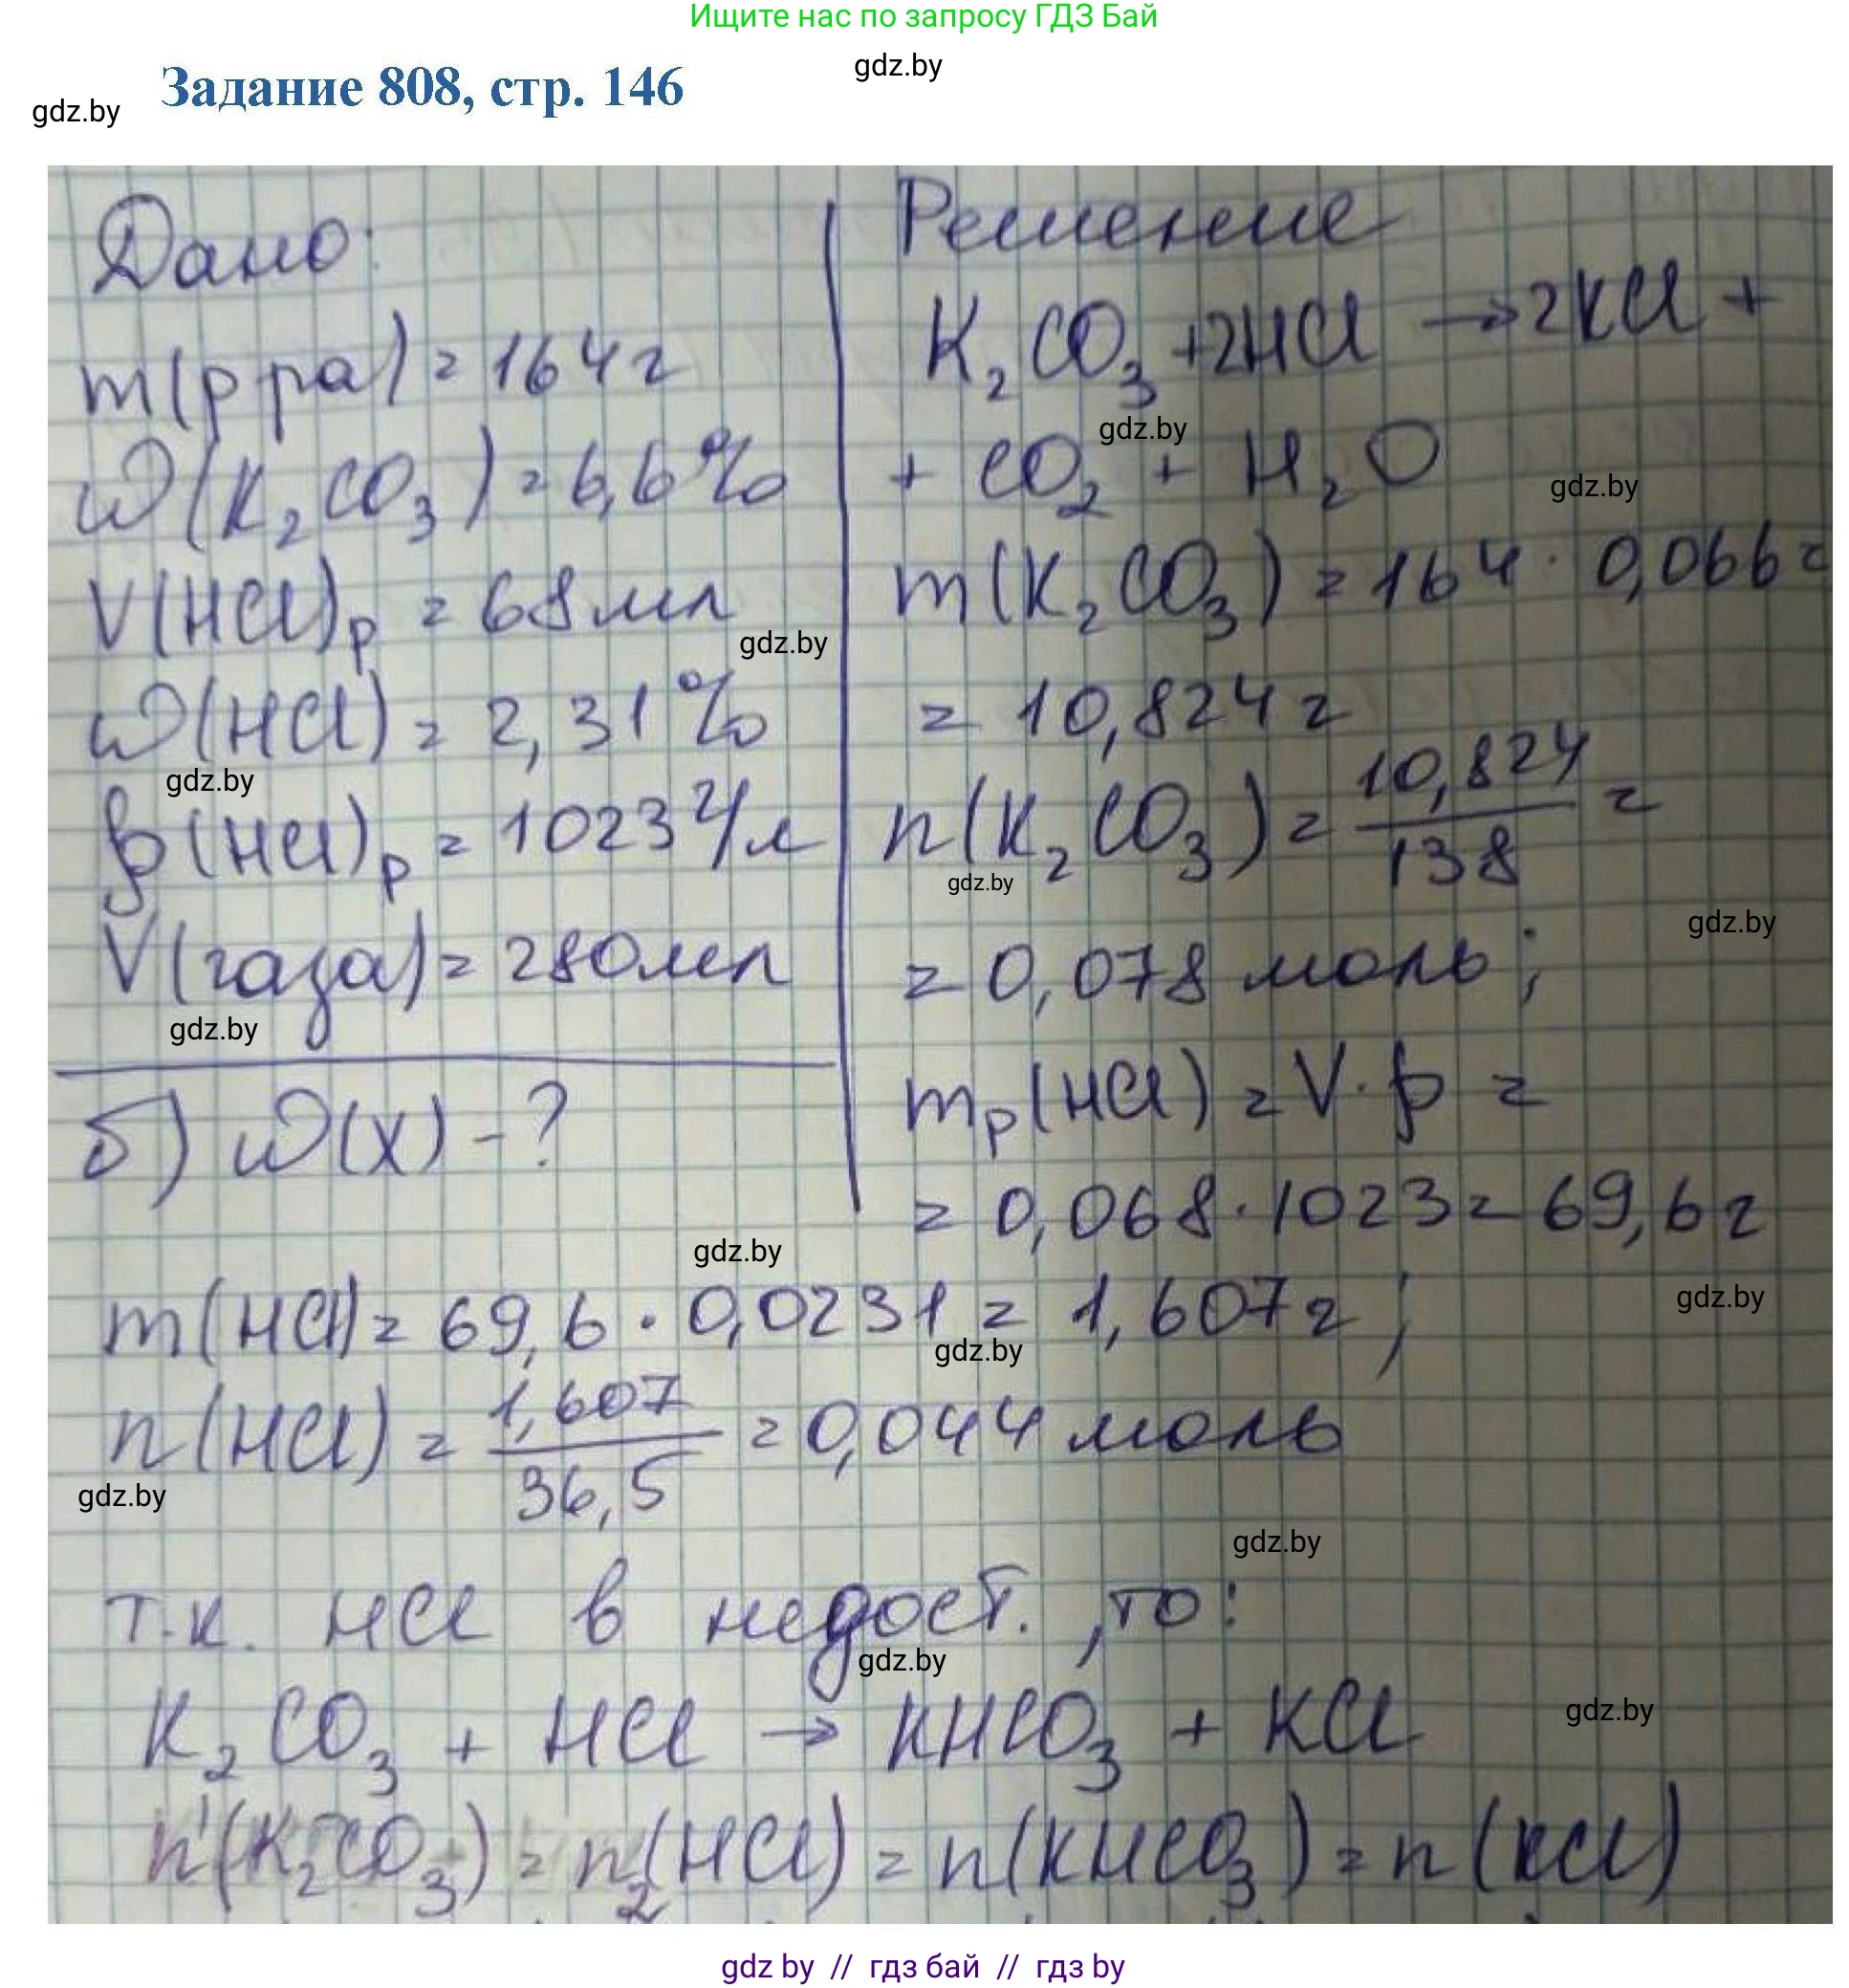 Ищите нас по запросу ГДЗ Бай
gdz.by
Задание 808, стр. 146
gdz.by
Дано:
m(р-ра) = 164 г
ω(K₂CO₃) = 6,6%
V(HCl)р = 68 мл
gdz.by
ω(HCl) = 2,31%
gdz.by
ρ(HCl)р = 1023 г/л
V(газа) = 280 мл
gdz.by
б) ω(X) - ?
Решение
K₂CO₃ + 2HCl → 2KCl +
gdz.by
+ CO₂ + H₂O
gdz.by
m(K₂CO₃) = 164 · 0,066 =
= 10,824 г
n(K₂CO₃) = 10,824/138 =
gdz.by
gdz.by
= 0,078 моль;
mр(HCl) = V · ρ =
= 0,068 · 1023 = 69,6 г
gdz.by
gdz.by
m(HCl) = 69,6 · 0,0231 = 1,607 г;
gdz.by
n(HCl) = 1,607/36,5 = 0,044 моль
gdz.by
gdz.by
т.к. HCl в недост., то:
gdz.by
K₂CO₃ + HCl → KHCO₃ + KCl
gdz.by
n'(K₂CO₃) = n₂(HCl) = n(KHCO₃) = n(KCl)
gdz by // гдз бай // гдз by